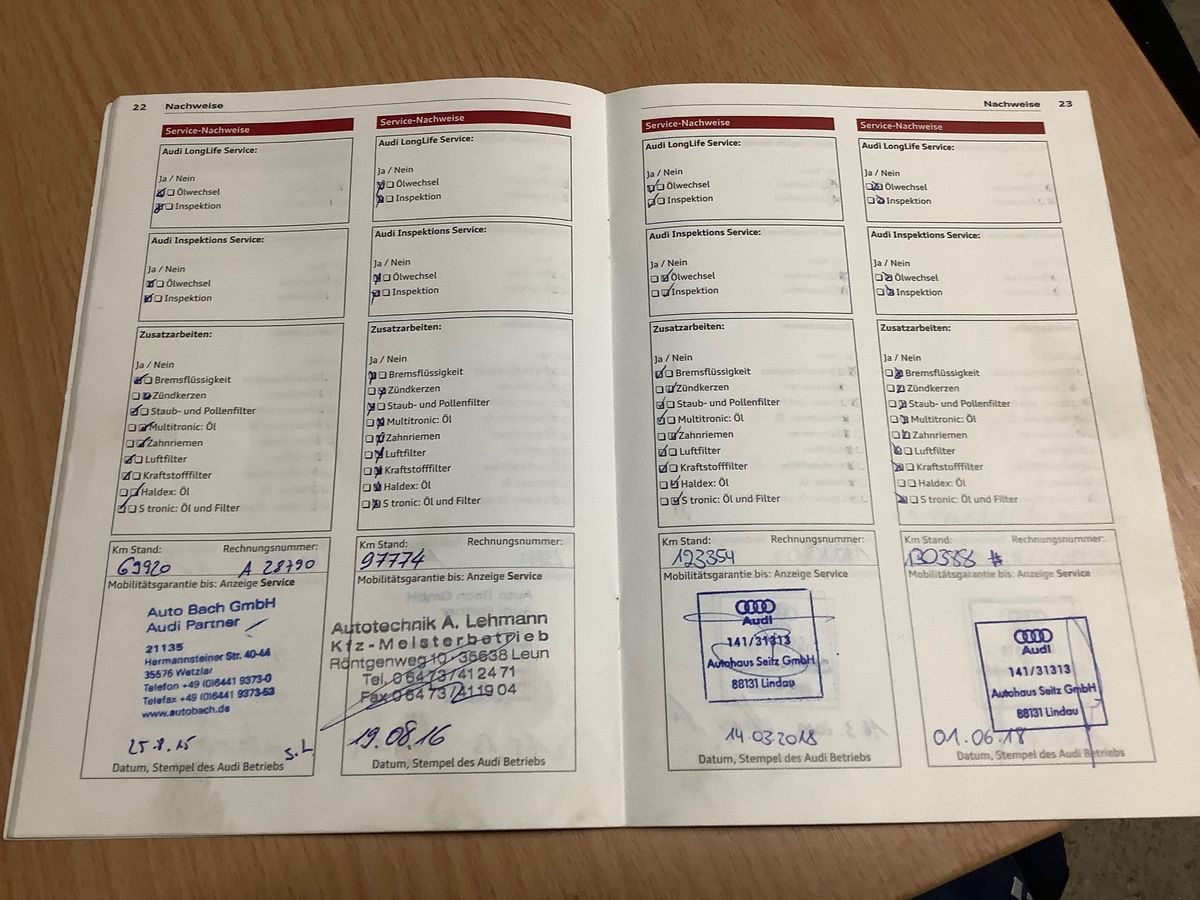 22 Nachweise
Service-Nachweise
Audi LongLife Service:
Ja / Nein
Ölwechsel
Inspektion
Audi Inspektions Service:
Ja / Nein
Ölwechsel
Inspektion
Zusatzarbeiten:
Ja / Nein
Bremsflüssigkeit
Zündkerzen
Staub- und Pollenfilter
Multitronic: Öl
Zahnriemen
Luftfilter
Kraftstofffilter
Haldex: Öl
S tronic: Öl und Filter
Km Stand: Rechnungsnummer:
69920 A 28790
Mobilitätsgarantie bis: Anzeige Service
Auto Bach GmbH
Audi Partner
21135
Hermannsteiner Str. 40-44
35576 Wetzlar
Telefon +49 (0)6441 9373-0
Telefax +49 (0)6441 9373-53
www.autobach.de
25.8.15 S.L
Datum, Stempel des Audi Betriebs
Service-Nachweise
Audi LongLife Service:
Ja / Nein
Ölwechsel
Inspektion
Audi Inspektions Service:
Ja / Nein
Ölwechsel
Inspektion
Zusatzarbeiten:
Ja / Nein
Bremsflüssigkeit
Zündkerzen
Staub- und Pollenfilter
Multitronic: Öl
Zahnriemen
Luftfilter
Kraftstofffilter
Haldex: Öl
S tronic: Öl und Filter
Km Stand: Rechnungsnummer:
97774
Mobilitätsgarantie bis: Anzeige Service
Autotechnik A. Lehmann
Kfz-Meisterbetrieb
Röntgenweg 10 · 35638 Leun
Tel. 0 64 73 / 41 24 71
Fax 0 64 73 / 41 19 04
19.08.16
Datum, Stempel des Audi Betriebs
Nachweise 23
Service-Nachweise
Audi LongLife Service:
Ja / Nein
Ölwechsel
Inspektion
Audi Inspektions Service:
Ja / Nein
Ölwechsel
Inspektion
Zusatzarbeiten:
Ja / Nein
Bremsflüssigkeit
Zündkerzen
Staub- und Pollenfilter
Multitronic: Öl
Zahnriemen
Luftfilter
Kraftstofffilter
Haldex: Öl
S tronic: Öl und Filter
Km Stand: Rechnungsnummer:
123354
Mobilitätsgarantie bis: Anzeige Service
Audi
141/31313
Autohaus Seitz GmbH
88131 Lindau
14.03.2018
Datum, Stempel des Audi Betriebs
Service-Nachweise
Audi LongLife Service:
Ja / Nein
Ölwechsel
Inspektion
Audi Inspektions Service:
Ja / Nein
Ölwechsel
Inspektion
Zusatzarbeiten:
Ja / Nein
Bremsflüssigkeit
Zündkerzen
Staub- und Pollenfilter
Multitronic: Öl
Zahnriemen
Luftfilter
Kraftstofffilter
Haldex: Öl
S tronic: Öl und Filter
Km Stand: Rechnungsnummer:
130388 #
Mobilitätsgarantie bis: Anzeige Service
Audi
141/31313
Autohaus Seitz GmbH
88131 Lindau
01.06.18
Datum, Stempel des Audi Betriebs